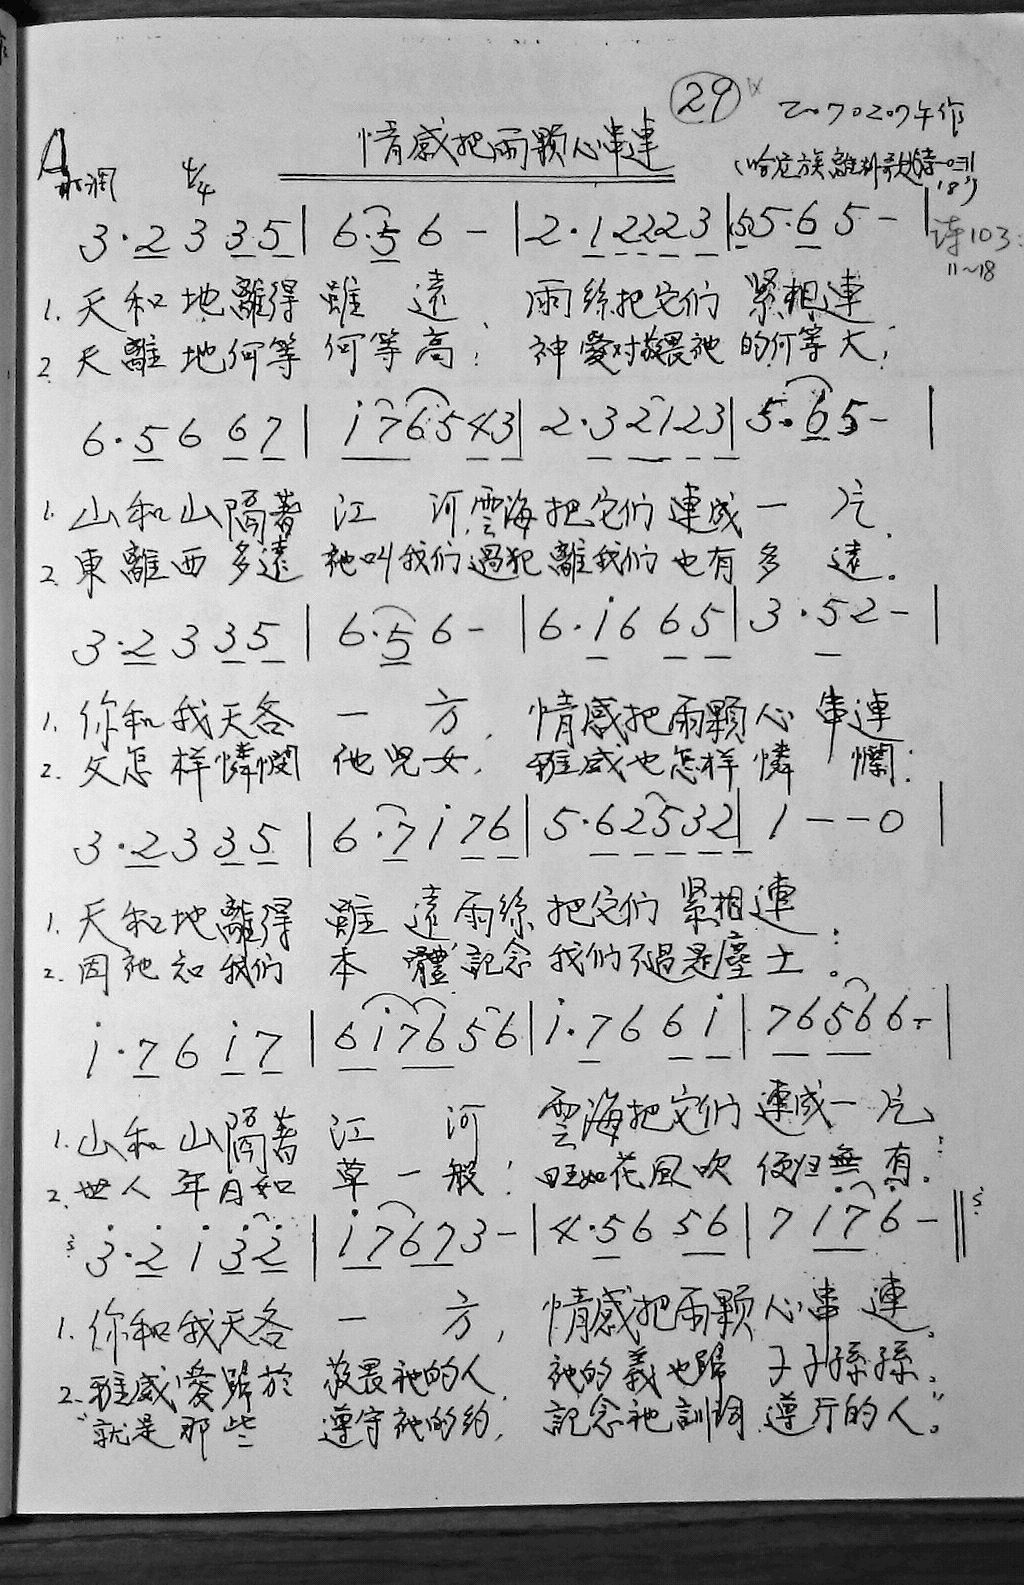 29
20070207午作
情感把兩顆心串連
(哈尼族離別歌
A 4/4
詩103:
11~18
3·2 3 3 5 | 6·5 6 - | 2·1 2 2 2 3 | 5 5·6 5 - |
1. 天和地離得雖遠、雨絲把它們緊相連
2. 天離地何等何等高;神愛对敬畏祂的何等大;
6·5 6 6 7 | i 7 6 5 4 3 | 2·3 2 1 2 3 | 5·6 5 - |
1. 山和山隔著江河,雲海把它們連成一片.
2. 東離西多遠祂叫我们過犯離我们也有多遠.
3·2 3 3 5 | 6·5 6 - | 6·i 6 6 5 | 3·5 2 - |
1. 你和我天各一方,情感把兩顆心串連
2. 父怎样憐憫他兒女,雅威也怎样憐憫;
3·2 3 3 5 | 6·7 i 7 6 | 5·6 2 5 3 2 | 1 - - 0 |
1. 天和地離得雖遠雨絲把它们緊相連
2. 因祂知我们本體,記念我们不過是塵土。
i·7 6 i 7 | 6 i 7 6 5 6 | i·7 6 6 i | 7 6 5 6 6 - |
1. 山和山隔著江河雲海把它們連成一片、
2. 世人年日如草一般!旺如花風吹便归無有.
3·2 i 3 2 | i 7 6 7 3 - | 4·5 6 5 6 | 7 i 7 6 - ||
1. 你和我天各一方,情感把兩顆心串連.
2. 雅威愛歸於敬畏祂的人.祂的義也歸子子孫孫.
"就是那些遵守祂的約,記念祂訓詞遵行的人。"